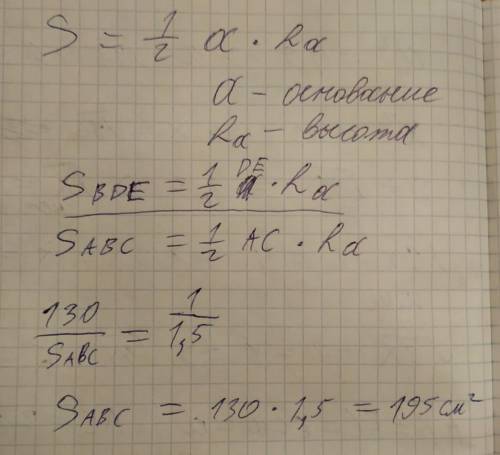 S = 1/2 a · ha
a - основание
ha - высота
SBDE = 1/2 DE · ha
SABC = 1/2 AC · ha
130/SABC = 1/1,5
SABC = 130 · 1,5 = 195 см²